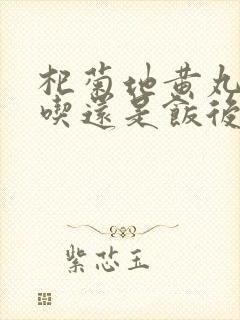 杞菊地黃丸
喫還是飯後
紫芯玉